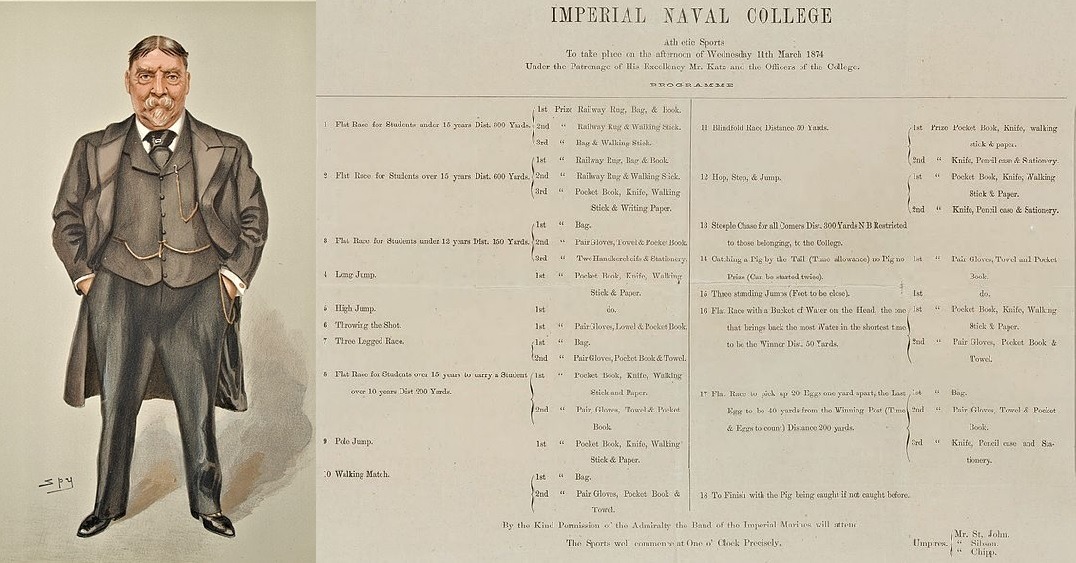 Spy
IMPERIAL NAVAL COLLEGE
Athletic Sports
To take place on the afternoon of Wednesday 11th March 1874
Under the Patronage of His Excellency Mr. Katz and the Officers of the College.
PROGRAMME
1 Flat Race for Students under 15 years Dist. 300 Yards.
1st Prize Railway Rug, Bag, & Book.
2nd " Railway Rug & Walking Stick.
3rd " Bag & Walking Stick.
2 Flat Race for Students over 15 years Dist. 600 Yards.
1st " Railway Rug, Bag & Book
2nd " Railway Rug & Walking Stick.
3rd " Pocket Book, Knife, Walking
Stick & Writing Paper.
3 Flat Race for Students under 12 years Dist. 150 Yards.
1st " Bag.
2nd " Pair Gloves, Towel & Pocket Book.
3rd " Two Handkerchiefs & Stationery.
4 Long Jump.
1st " Pocket Book, Knife, Walking
Stick & Paper.
5 High Jump.
1st do.
6 Throwing the Shot.
1st " Pair Gloves, Lowel & Pocket Book
7 Three Legged Race.
1st " Bag.
2nd " Pair Gloves, Pocket Book & Towel.
8 Flat Race for Students over 15 years to carry a Student
over 10 years Dist 200 Yards.
1st " Pocket Book, Knife, Walking
Stick and Paper.
2nd " Pair Gloves, Towel & Pocket
Book
9 Pole Jump.
1st " Pocket Book, Knife, Walking
Stick & Paper.
10 Walking Match.
1st " Bag.
2nd " Pair Gloves, Pocket Book &
Towel.
11 Blindfold Race Distance 50 Yards.
1st Prize Pocket Book, Knife, walking
stick & paper.
2nd " Knife, Pencil case & Stationery.
12 Hop, Step, & Jump.
1st " Pocket Book, Knife, Walking
Stick & Paper.
2nd " Knife, Pencil case & Sationery.
13 Steeple Chase for all Comers Dis. 300 Yards N B Restricted
to those belonging, to the College.
14 Catching a Pig by the Tail (Time allowance) no Pig no
Prize (Can be started twice).
1st " Pair Gloves, Towel and Pocket
Book.
15 Three standing Jumps (Feet to be close).
1st do.
16 Flat Race with a Bucket of Water on the Head the one
that brings back the most Water in the shortest time
to be the Winner Dis. 50 Yards.
1st " Pocket Book, Knife, Walking
Stick & Paper.
2nd " Pair Gloves, Pocket Book &
Towel.
17 Flat Race to pick up 20 Eggs one yard apart, the Last
Egg to be 40 yards from the Winning Post (Time
& Eggs to count) Distance 200 yards.
1st " Bag.
2nd " Pair Gloves, Towel & Pocket
Book.
3rd " Knife, Pencil case and Sta-
tionery.
18 To Finish with the Pig being caught if not caught before.
By the Kind Permission of the Admiralty the Band of the Imperial Marines will attend
The Sports will commence at One o' Clock Precisely.
Umpires. Mr. St, John.
" Sibson.
" Chipp.